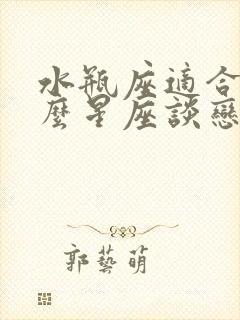 水瓶座適合
麼星座談戀
郭藝萌